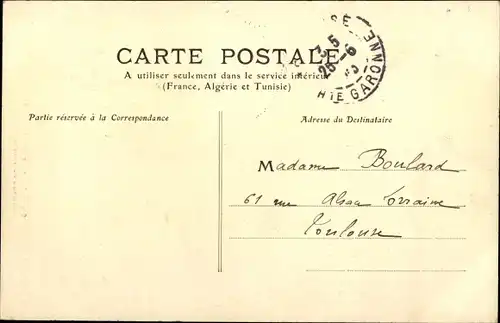 CARTE POSTALE
A utiliser seulement dans le service intérieur
(France, Algérie et Tunisie)
HTE GARONNE
25 -6
Partie réservée à la Correspondance
Adresse du Destinataire
Madame Boulard
61 rue Alsace Lorraine
Toulouse